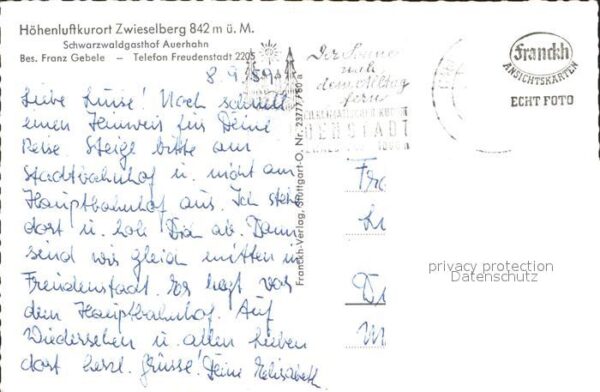 Höhenluftkurort Zwieselberg 842 m ü. M.
Schwarzwaldgasthof Auerhahn
Bes. Franz Gebele — Telefon Freudenstadt 2205
8. 9. 59.
Liebe Luise! Noch schnell
einen Hinweis für Deine
Reise. Steige bitte am
Stadtbahnhof u. nicht am
Hauptbahnhof aus. Ich stehe
dort u. hole Dich ab. Dann
sind wir gleich mitten in
Freudenstadt. Es liegt vor
dem Hauptbahnhof. Auf
Wiedersehen u. allen lieben
dort herzl. Grüsse! Deine Elisabeth
Franckh-Verlag, Stuttgart-O, Nr. 23777/60 a
Der Sonne
nah
dem Alltag
fern
UDENSTADT
Franckh
ANSICHTSKARTEN
ECHT FOTO
Fra
Lu
privacy protection
Datenschutz